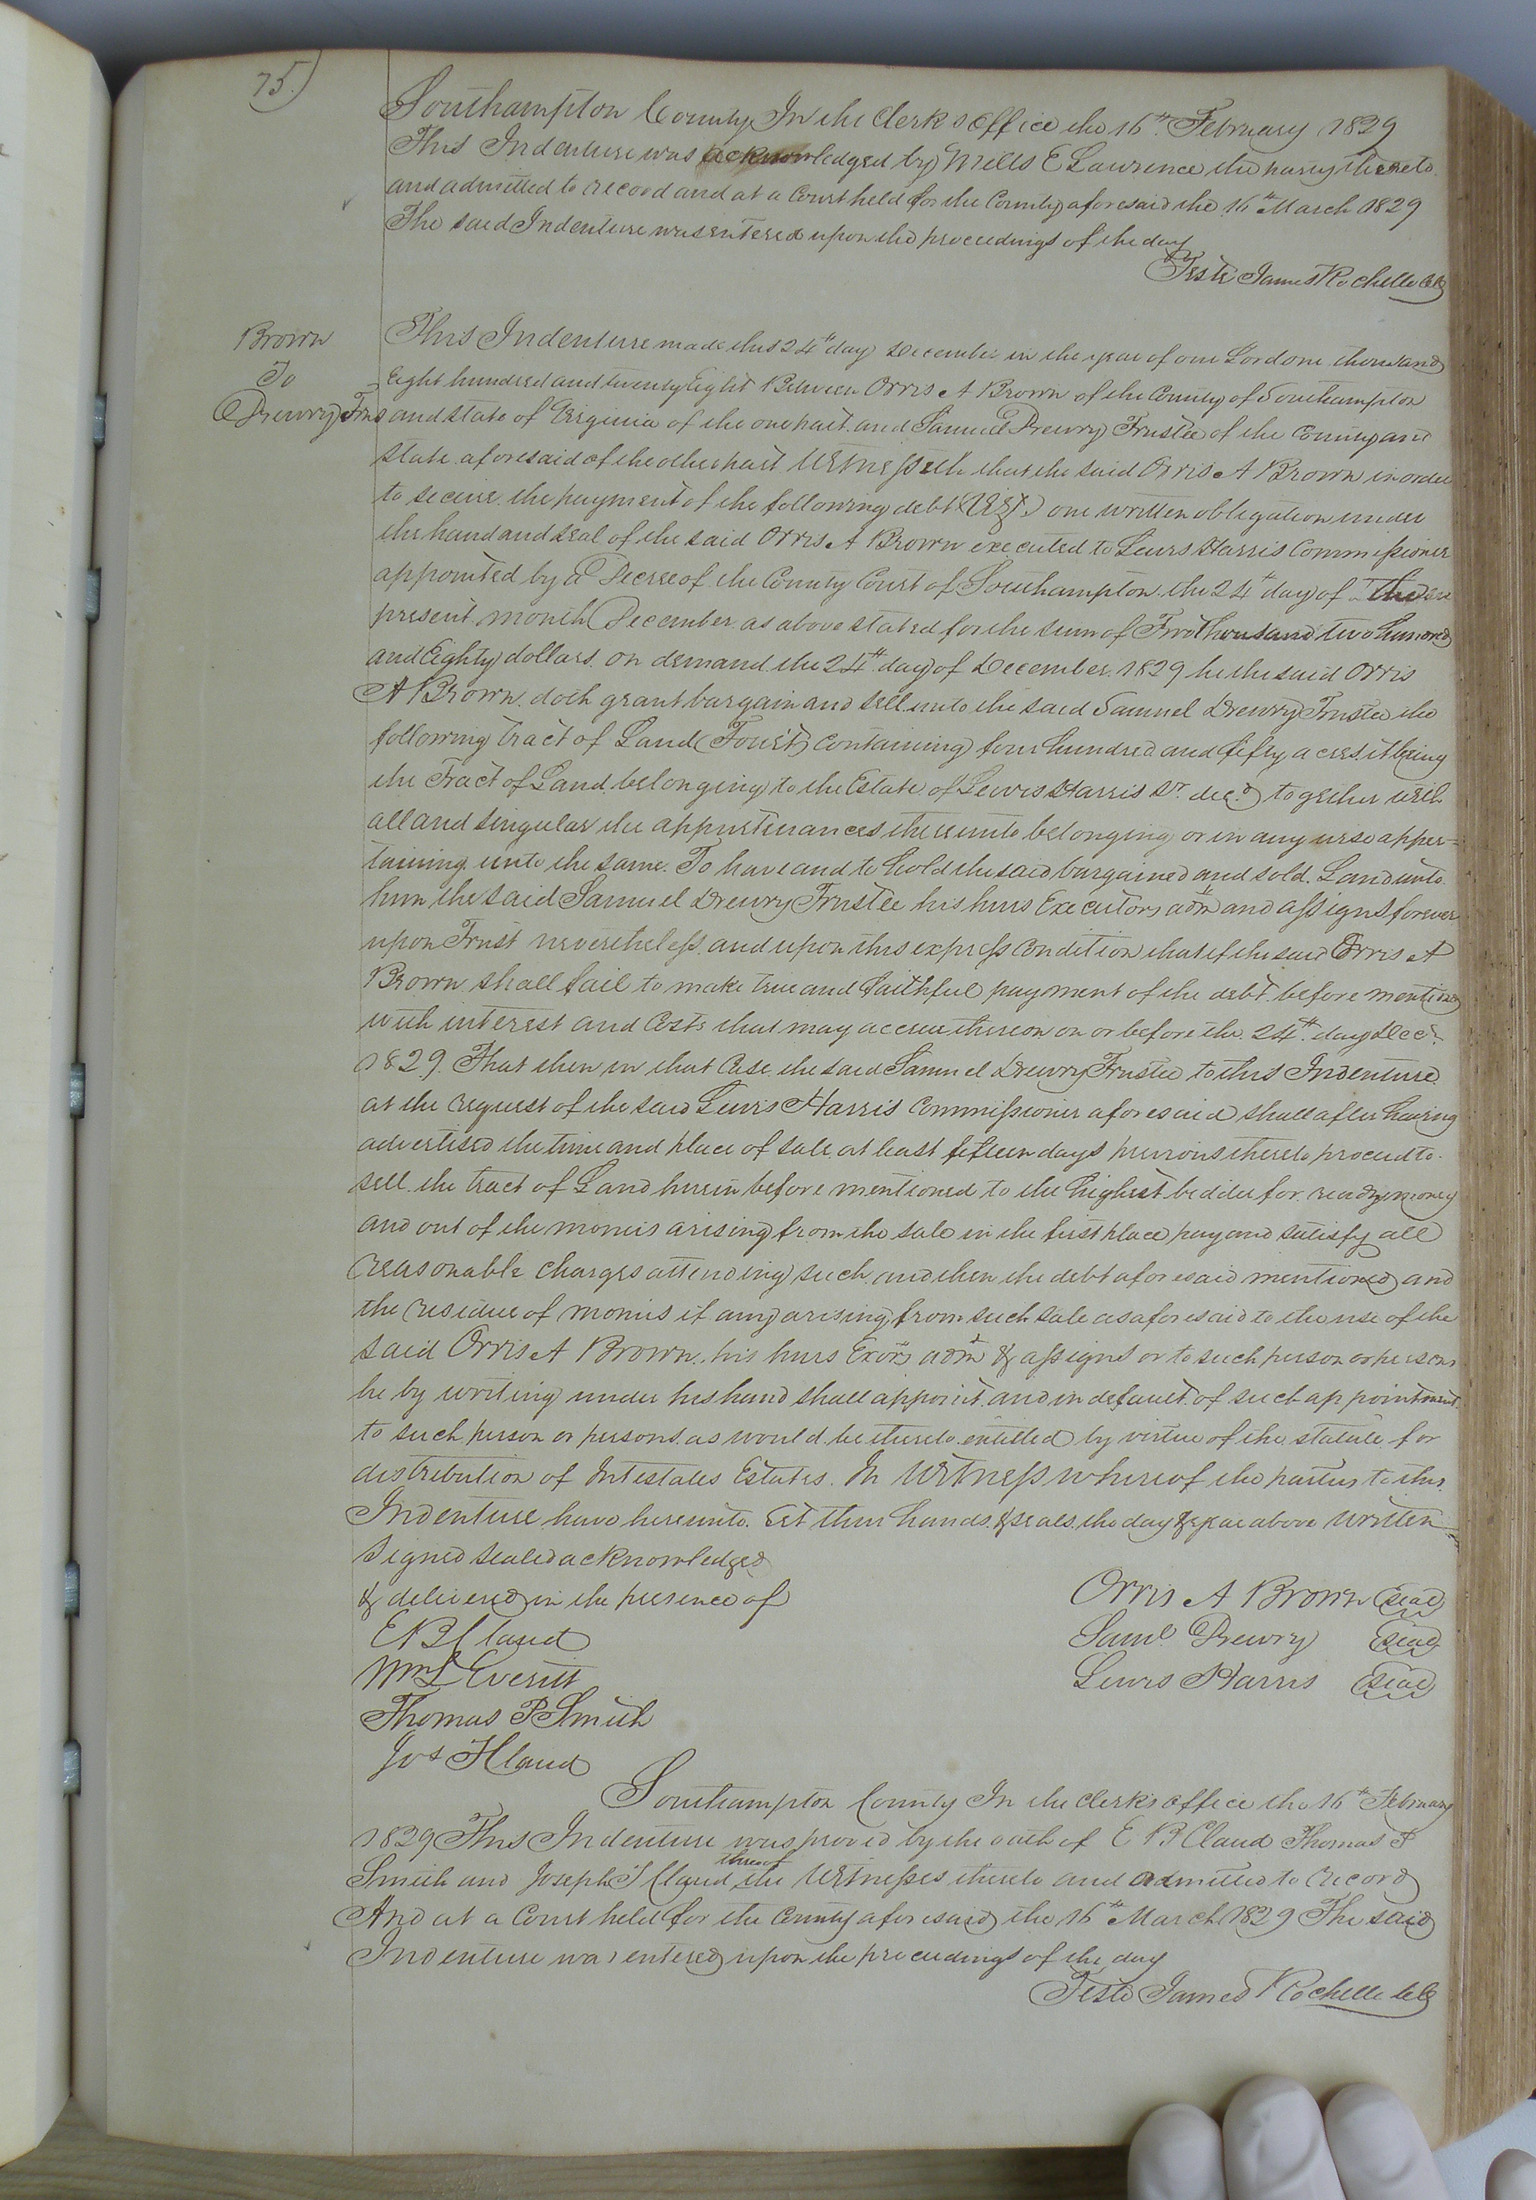 75)
Southampton County In the Clerks office the 16th February 1829
This Indenture was acknowledged by Mills E Lawrence the party thereto
and admitted to record and at a Court held for the County aforesaid the 16th March 1829
The said Indenture was entered upon the proceedings of the day
Teste James Rochelle Clk
Brown
To
Drewry Trus
This Indenture made this 24th day December in the year of our Lord one thousand
Eight hundred and twenty Eight Between Orris A Brown of the County of Southampton
and State of Virginia of the one part and Samuel Drewry Trustee of the County and
State aforesaid of the other part Witnesseth that the said Orris A Brown in order
to secure the payment of the following debt (Viz.) one written obligation under
the hand and seal of the said Orris A Brown executed to Lewis Harris Commissioner
appointed by a Decree of the County Court of Southampton the 24th day of The
present month December as above stated for the sum of Two thousand two hundred
and Eighty dollars on demand the 24th day of December 1829 he the said Orris
A Brown doth grant bargain and sell unto the said Samuel Drewry Trustee the
following tract of Land (To wit) containing four hundred and fifty acres it being
the Tract of Land belonging to the Estate of Lewis Harris Sr. decd together with
all and singular the appurtenances thereunto belonging or in any wise apper=
taining unto the same. To have and to hold the said bargained and sold Land unto
him the said Samuel Drewry Trustee his heirs Executors adm and assigns forever
upon Trust nevertheless and upon this express condition that if the said Orris A
Brown shall fail to make true and faithful payment of the debt before mentioned
with interest and Costs that may accrue thereon on or before the 24th day Decr.
1829. That then in that Case the said Samuel Drewry Trustee to this Indenture
at the request of the said Lewis Harris Commissioner aforesaid shall after having
advertised the time and place of sale at least fifteen days previous thereto proceed to
sell the tract of Land herein before mentioned to the highest bidder for ready money
and out of the monies arising from the sale in the first place pay and satisfy all
reasonable charges attending such and then the debt aforesaid mentioned and
the residue of monies if any arising from such sale as aforesaid to the use of the
said Orris A Brown his heirs Exors adm & assigns or to such person or persons
he by writing under his hand shall appoint and in default of such appointment
to such person or persons as would be thereto entitled by virtue of the statute for
distribution of Intestates Estates. In Witness whereof the parties to this
Indenture have hereunto Set their hands & seals the day & year above written
Signed sealed acknowledged
& delivered in the presence of
Orris A Brown Seal
E B Claud
Saml Drewry Seal
Wm L Everitt
Lewis Harris Seal
Thomas P Smith
Jos T Claud
Southampton County In the Clerks office the 16th February
1829 This Indenture was proved by the oath of E B Claud Thomas P
Smith and Joseph T Claud three of the Witnesses thereto and admitted to record
And at a Court held for the County aforesaid the 16th March 1829 The said
Indenture was entered upon the proceedings of the day
Teste James Rochelle Clk